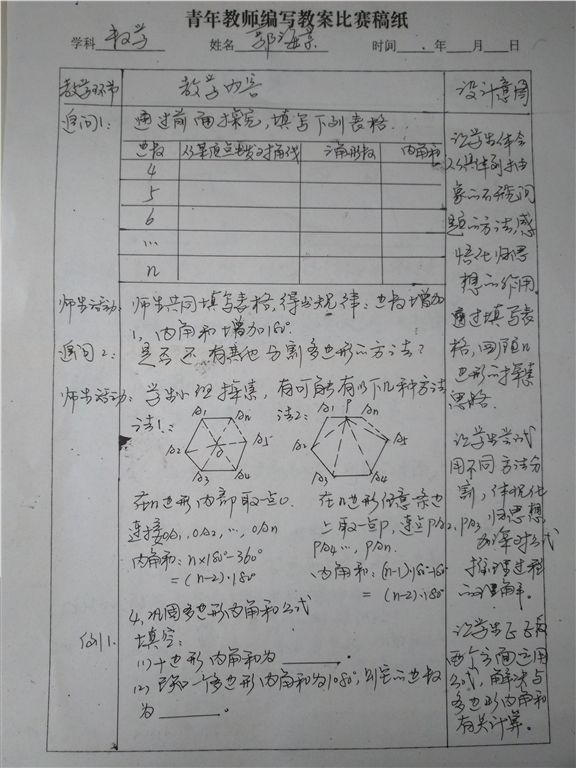 青年教师编写教案比赛稿纸
学科 数学 姓名 郭海景 时间 . 年 月 日
教学环节 教学内容 设计意图
追问1: 通过前面探究,填写下列表格.
边数 从某顶点出发对角线 三角形数 内角和
4
5
6
...
n
让学生体会
从具体到抽
象的研究问
题的方法,感
悟化归思
想的作用.
师生活动: 师生共同填写表格,得出规律:边数增加
1,内角和增加180°.
通过填写表
格,回顾n
边形的探索
思路.
追问2: 是否还有其他分割多边形的方法?
师生活动: 学生小组探索,有可能有以下几种方法
法1: A1 An A2 A5 A3 A4 O
法2: A1 P An A2 A5 A3 A4
在n边形内部取一点O.
连接OA1,OA2,…,OAn
内角和:n×180°-360°
=(n-2)·180°
在n边形任意条边
上取一点P,连接PA2,PA3
PA4…,PAn.
内角和:(n-1)·180°-180°
=(n-2)·180°
让学生尝试
用不同方法分
割,体现化
归思想,
加深对公式
推理过程
的理解.
4.巩固多边形内角和公式
例1. 填空:
(1)十边形内角和为 .
(2)已知一个多边形内角和为1080°,则它的边数
为 .
让学生正反
两个方面运用
公式,解决与
多边形内角和
有关计算。